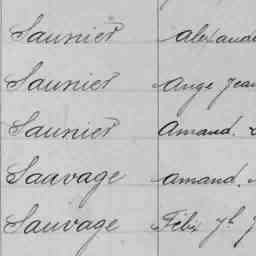 Saunier Alexand
Saunier Ange Jean
Saunier Amand.
Sauvage Amand.
Sauvage Félix